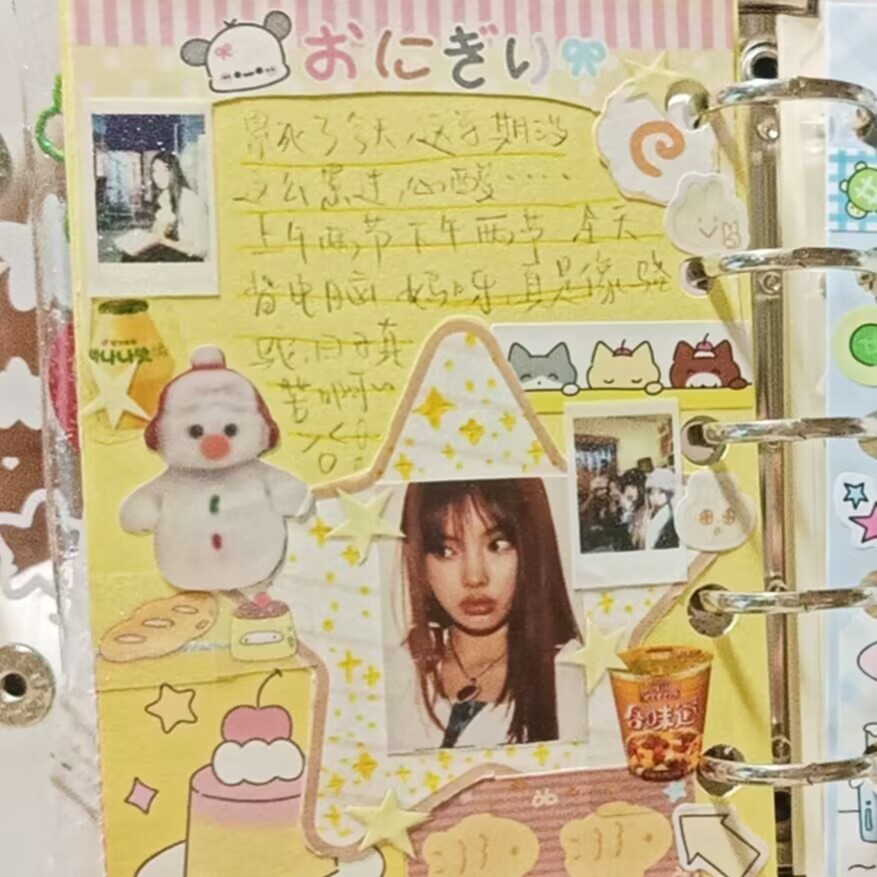 おにぎり
累死了今天,这学期没
这么累过,心酸....
上午两节下午两节 全天
背电脑 妈呀,真是像骆
驼,日子真
苦啊
바나나맛
合味道